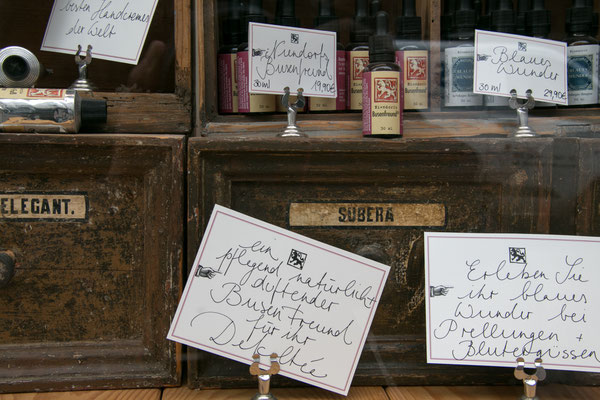 besten Handcremes
der Welt
Nundorfs
Busenfreund
30 ml 19,90€
Busenfreund
30 ml
Blaues
Wunder
30 ml 29,90€
ELEGANT.
SUBERA
ein
pflegend, natürlich
duftender
Busenfreund
für ihr
Dekoltée
Erleben Sie
ihr blaues
Wunder bei
Prellungen +
Blutergüssen